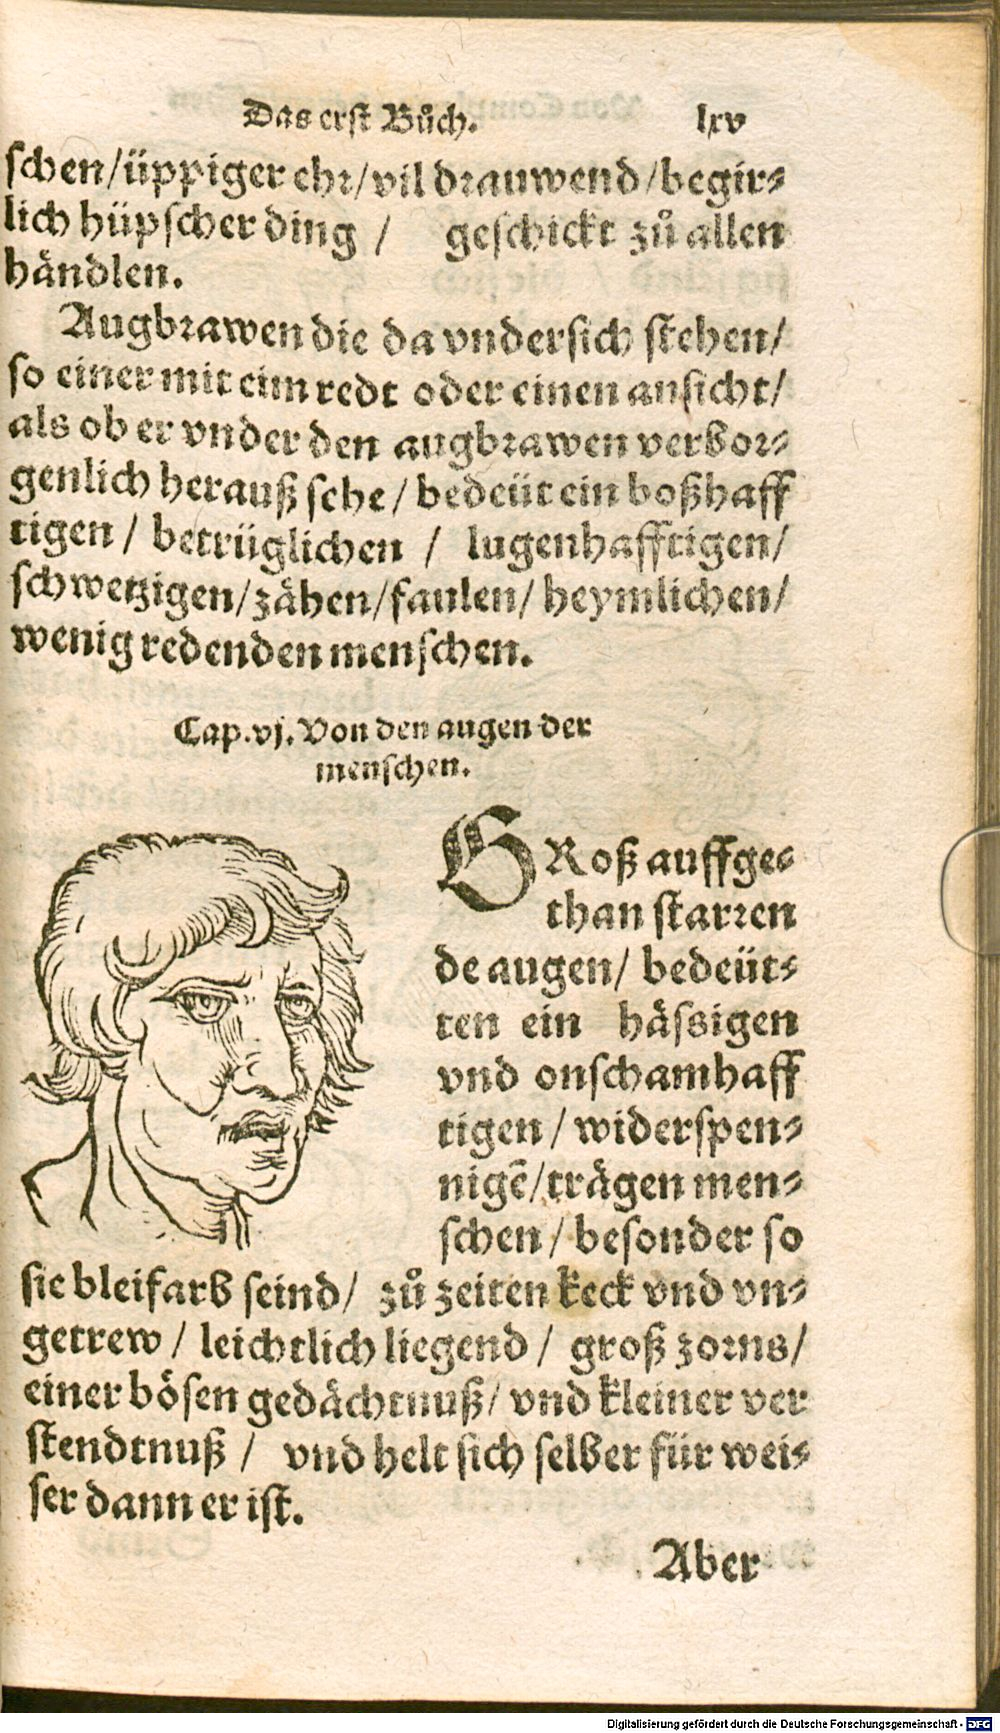 Das erst Bůch. lxv
schen/üppiger ehr/vil drauwend/begir⸗
lich hüpscher ding / geschickt zů allen
händlen.
Augbrawen die da vndersich stehen/
so einer mit eim redt oder einen ansicht/
als ob er vnder den augbrawen verbor⸗
genlich herauß sehe/ bedeüt ein boßhaff
tigen / betrüglichen / lugenhafftigen/
schwetzigen/zähen/faulen/ heymlichen/
wenig redenden menschen.
Cap.vj. Von den augen der
menschen.
GRoß auffge⸗
than starren
de augen/ bedeüt⸗
ten ein hässigen
vnd onschamhaff
tigen / widerspen⸗
nigē/trägen men⸗
schen / besonder so
sie bleifarb seind/ zů zeiten keck vnd vn⸗
getrew / leichtlich liegend / groß zorns/
einer bösen gedächtnuß/ vnd kleiner ver
stendtnuß / vnd helt sich selber für wei⸗
ser dann er ist.
Aber
Digitalisierung gefördert durch die Deutsche Forschungsgemeinschaft - DFG